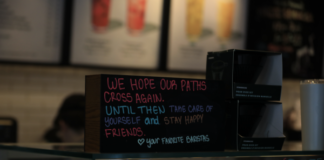 WE HOPE OUR PATHS
CROSS AGAIN.
UNTIL THEN TAKE CARE OF
YOURSELF and STAY HAPPY
FRIENDS.
♡ your FAVORITE BARISTAS